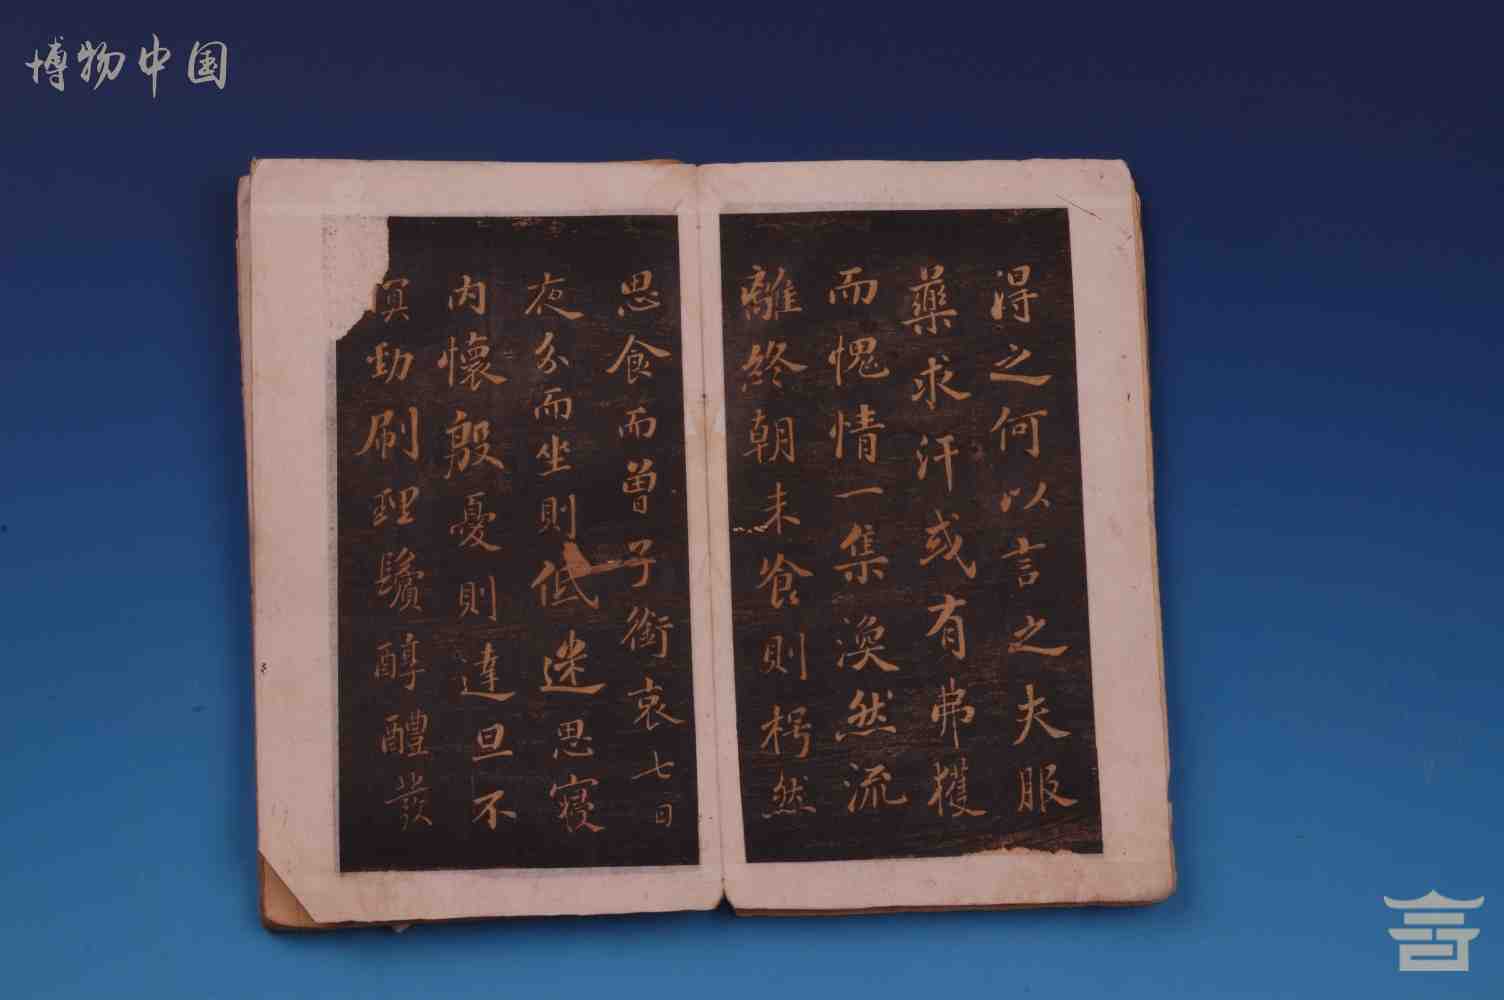 博物中国
得之何以言之夫服
藥求汗或有弗獲
而愧情一集渙然流
離終朝未食則枵然
思食而曾子銜哀七日
夜分而坐則低迷思寢
內懷殷憂則達旦不
瞑勁刷理鬢醇醴發